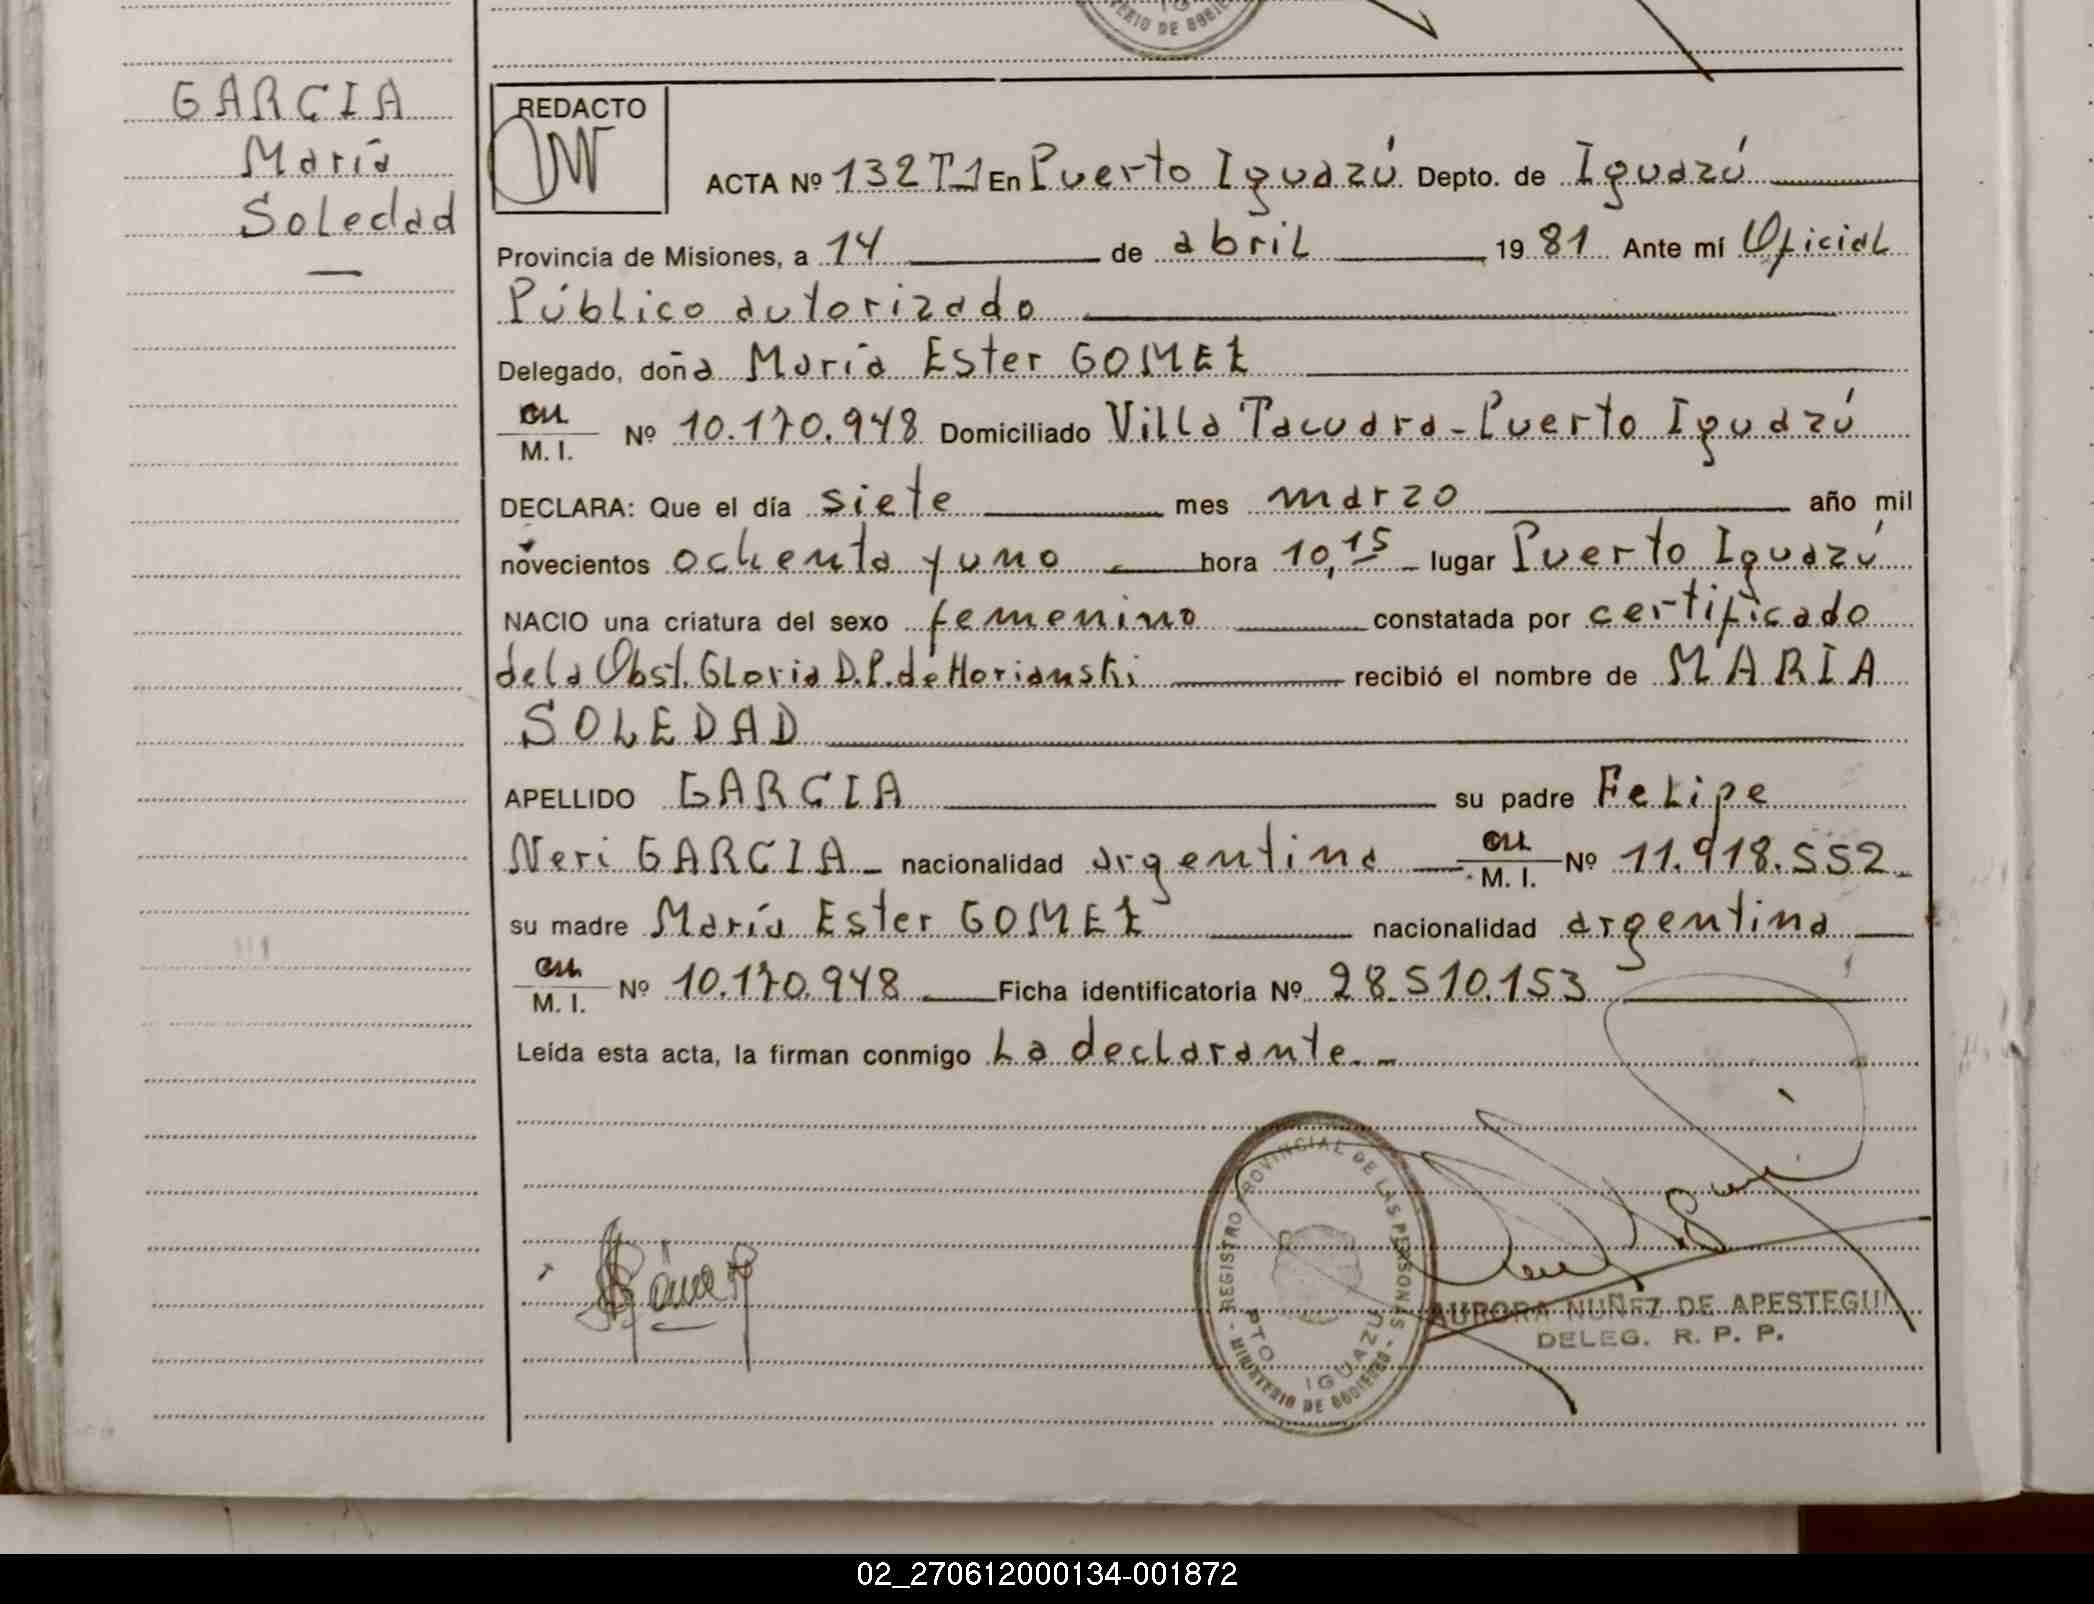 GARCIA
María
Soledad
REDACTO
ACTA Nº 132T1 En Puerto Iguazú Depto. de Iguazú
Provincia de Misiones, a 14 de abril 1981 Ante mí Oficial
Público autorizado
Delegado, doña María Ester GOMEZ
CU
M. I. Nº 10.170.948 Domiciliado Villa Tacuara - Puerto Iguazú
DECLARA: Que el día siete mes marzo año mil
novecientos ochenta y uno hora 10,15 lugar Puerto Iguazú
NACIO una criatura del sexo femenino constatada por certificado
de la Obst. Gloria D.P. de Horianski recibió el nombre de MARIA
SOLEDAD
APELLIDO GARCIA su padre Felipe
Neri GARCIA nacionalidad argentina CU
M. I. Nº 11.918.552
su madre María Ester GOMEZ nacionalidad argentina
CU
M. I. Nº 10.170.948 Ficha identificatoria Nº 28.510.153
Leída esta acta, la firman conmigo La declarante.-
REGISTRO PROVINCIAL DE LAS PERSONAS
PTO IGUAZU
MINISTERIO DE GOBIERNO
AURORA NUÑEZ DE APESTEGUI
DELEG. R. P. P.
02_270612000134-001872